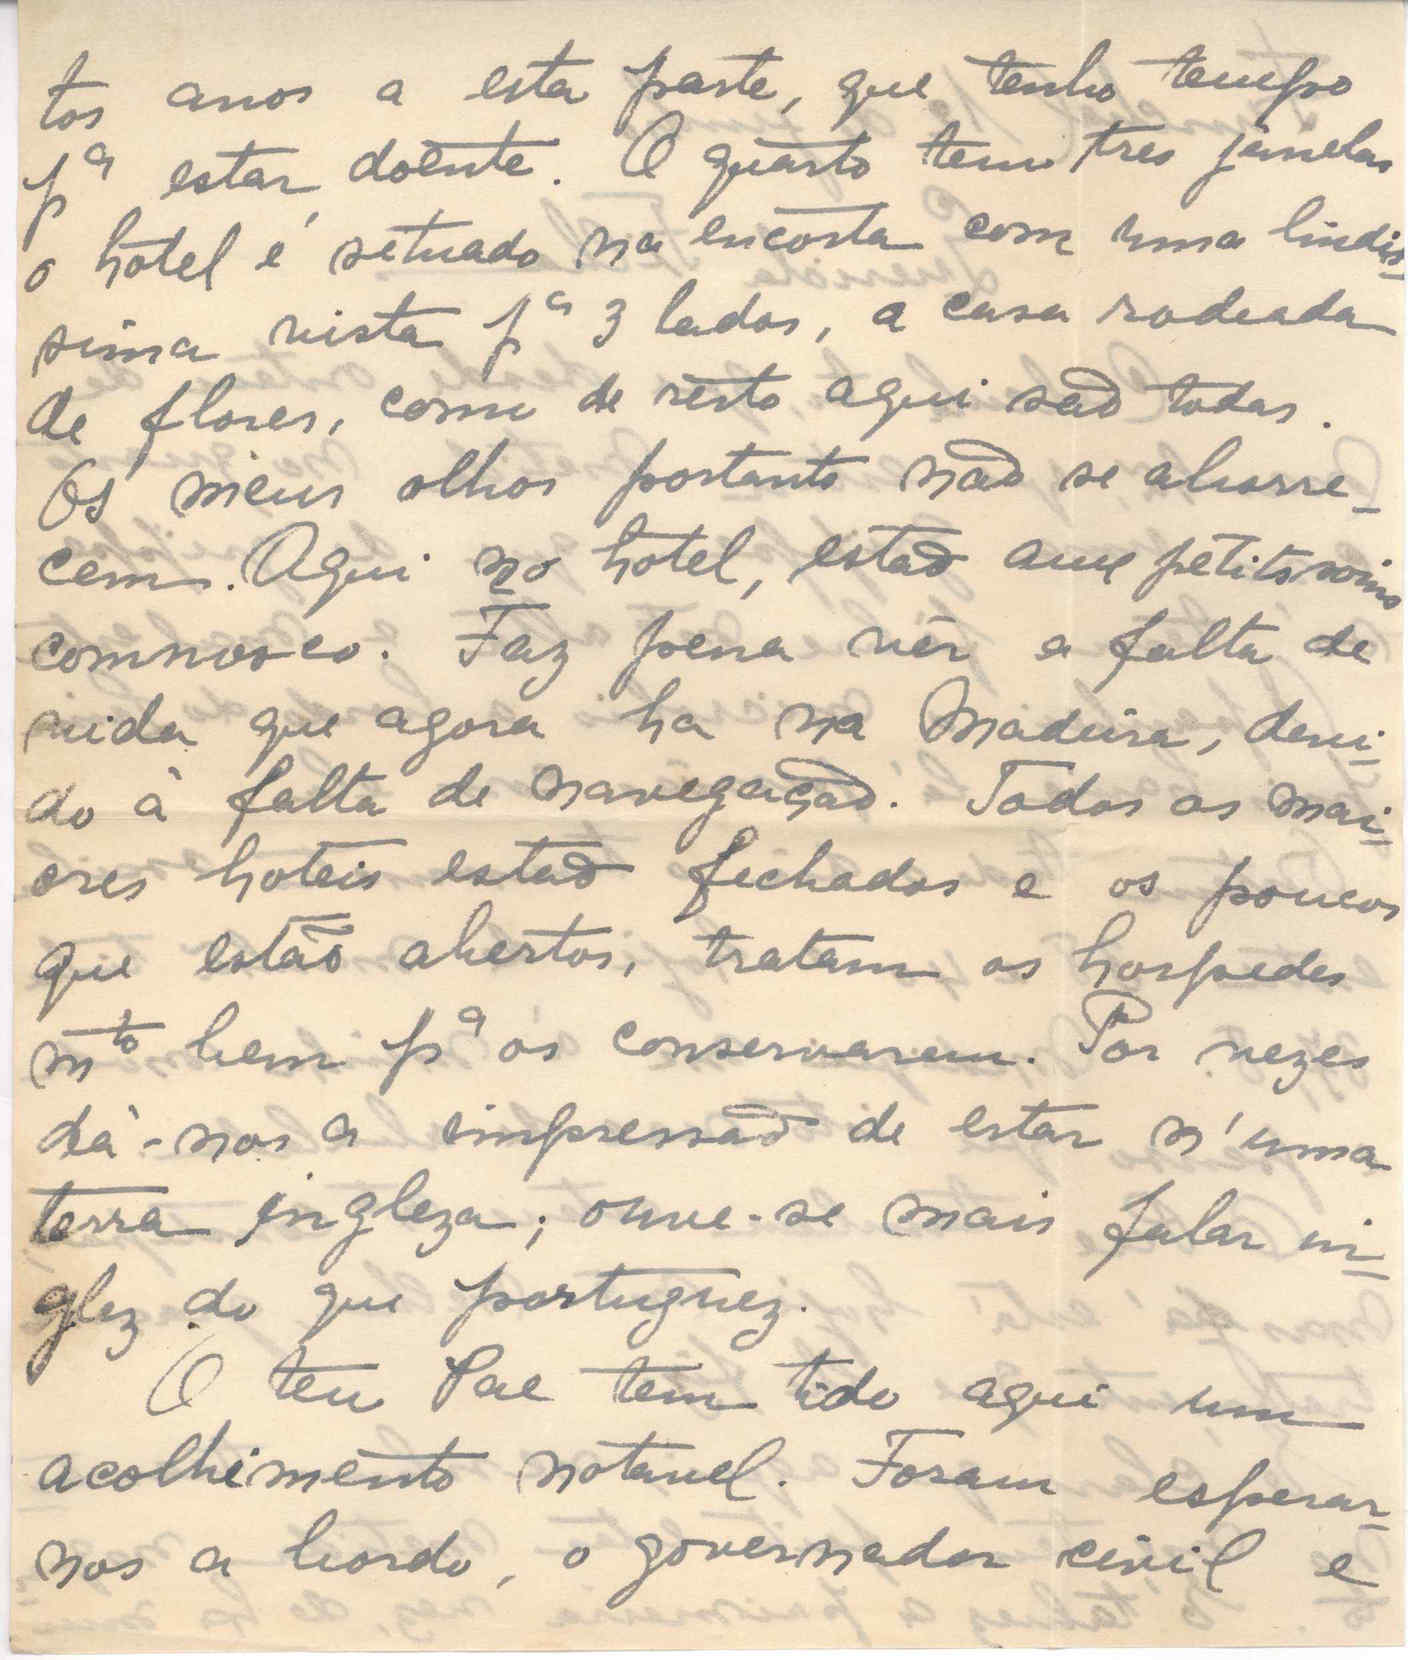 tos anos a esta parte, que tenho tempo
pª estar doente. O quarto tem tres janelas
o hotel é situado na encosta com uma lindis-
sima vista pª 3 lados, a casa rodeada
de flores, como de resto aqui são todas.
Os meus olhos portanto não se aborre-
cem. Aqui no hotel, estão aux petits soins
comnosco. Faz pena vêr a falta de
vida que agora ha na Madeira, devi-
do à falta de navegação. Todos os mai-
ores hoteis estão fechados e os poucos
que estão abertos, tratam os hospedes
mto bem pª os conservarem. Por vezes
dá-nos a impressão de estar n'uma
terra ingleza; ouve-se mais falar in-
glez do que portuguez.
O teu Pae tem tido aqui um
acolhimento notavel. Foram esperar-
nos a bordo, o governador civil e